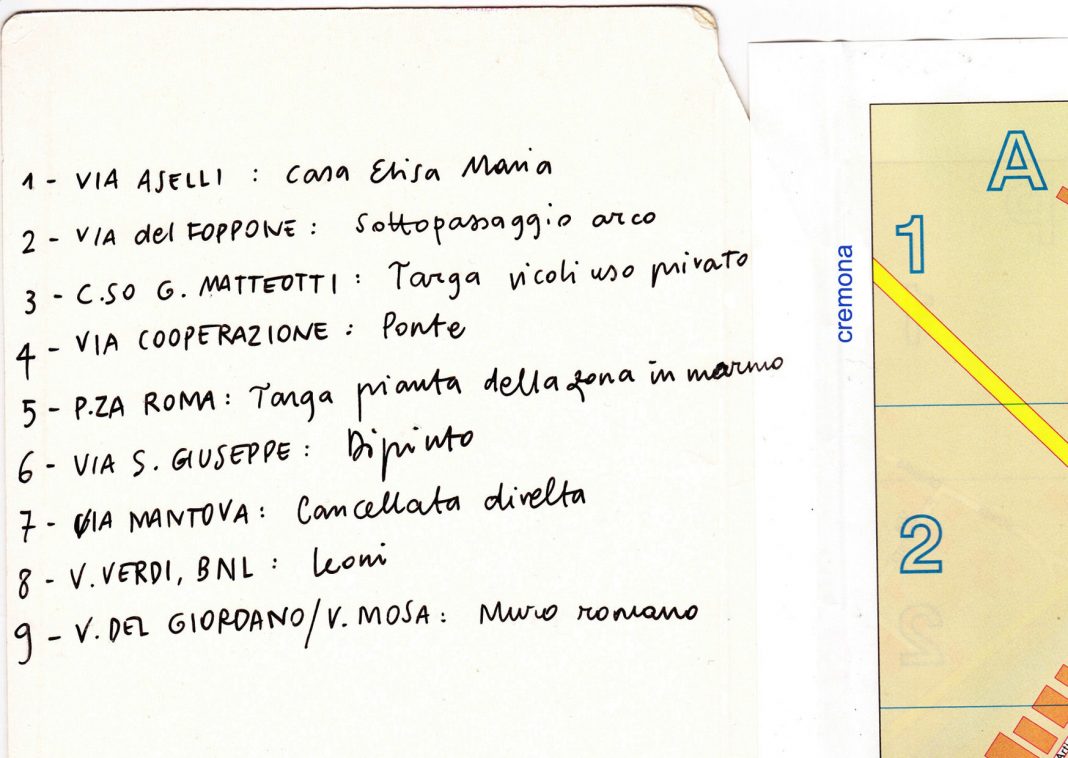 1 - VIA ASELLI : Casa Elisa Maria
2 - VIA del FOPPONE : Sottopassaggio arco
3 - C.SO G. MATTEOTTI : Targa vicoli uso privato
4 - VIA COOPERAZIONE : Ponte
5 - P.ZA ROMA : Targa pianta della zona in marmo
6 - VIA S. GIUSEPPE : Dipinto
7 - VIA MANTOVA : Cancellata divelta
8 - V. VERDI, BNL : Leoni
9 - V. DEL GIORDANO/V. MOSA : Muro romano
cremona
A
1
2